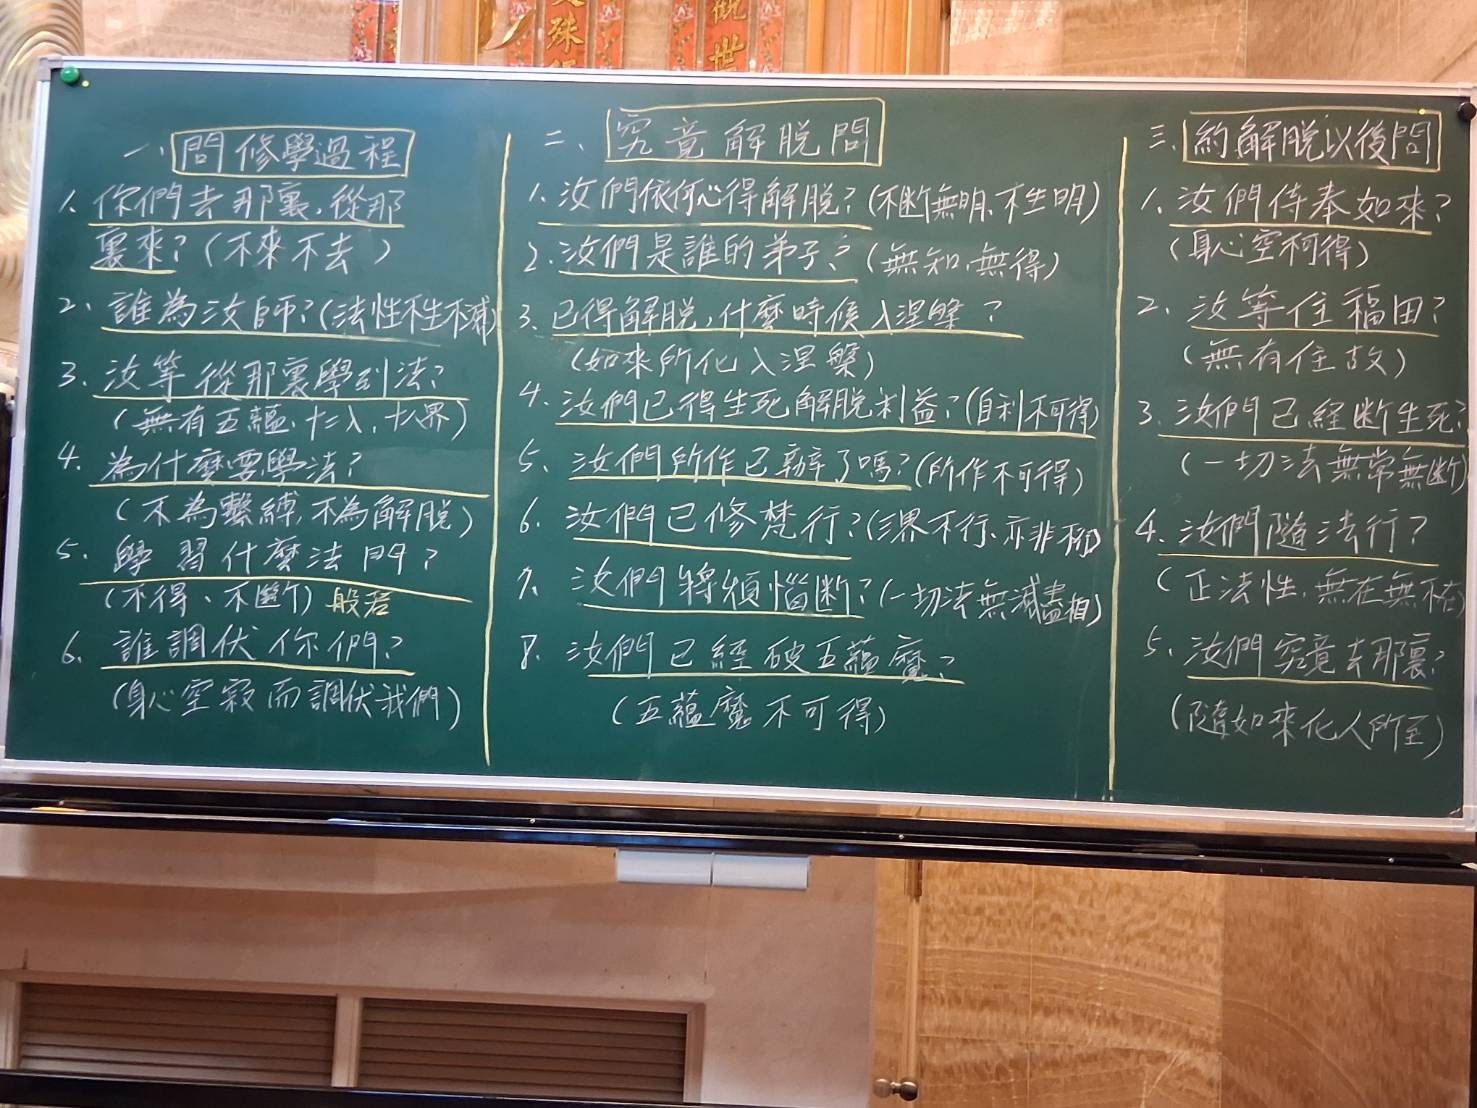 文殊
觀世
一、問修學過程
1. 你們去那裏,從那
裏來?(不來不去)
2. 誰為汝師?(法性不生不滅)
3. 汝等從那裏學到法?
(無有五蘊、十二入、十八界)
4. 為什麼要學法?
(不為繫縛,不為解脫)
5. 學習什麼法門?
(不得、不斷)般若
6. 誰調伏你們?
(身心空寂而調伏我們)
二、究竟解脫問
1. 汝們依何心得解脫?(不斷無明、不生明)
2. 汝們是誰的弟子?(無知、無得)
3. 已得解脫,什麼時候入涅槃?
(如來所化入涅槃)
4. 汝們已得生死解脫利益?(自利不可得)
5. 汝們所作已辦了嗎?(所作不可得)
6. 汝們已修梵行?(三界不行、亦非不行)
7. 汝們將煩惱斷?(一切法無滅盡相)
8. 汝們已經破五蘊魔?
(五蘊魔不可得)
三、約解脫以後問
1. 汝們侍奉如來?
(身心空柯得)
2. 汝等住福田?
(無有住故)
3. 汝們已經斷生死?
(一切法無常無斷)
4. 汝們隨法行?
(正法性,無在無不在)
5. 汝們究竟去那裏?
(隨如來化人所至)